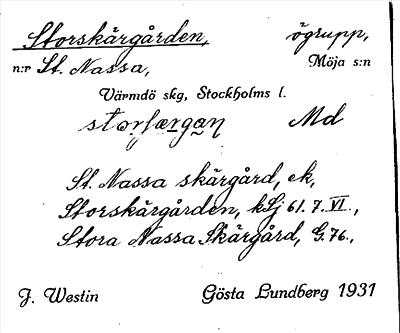 Storskärgården, ögrupp,
n:r St. Nassa, Möja s:n
Värmdö skg, Stockholms l.
Md
St. Nassa skärgård, ek,
Storskärgården, kSj 61.7.VI.,
Stora Nassa Skärgård, G.76.,
J. Westin Gösta Lundberg 1931